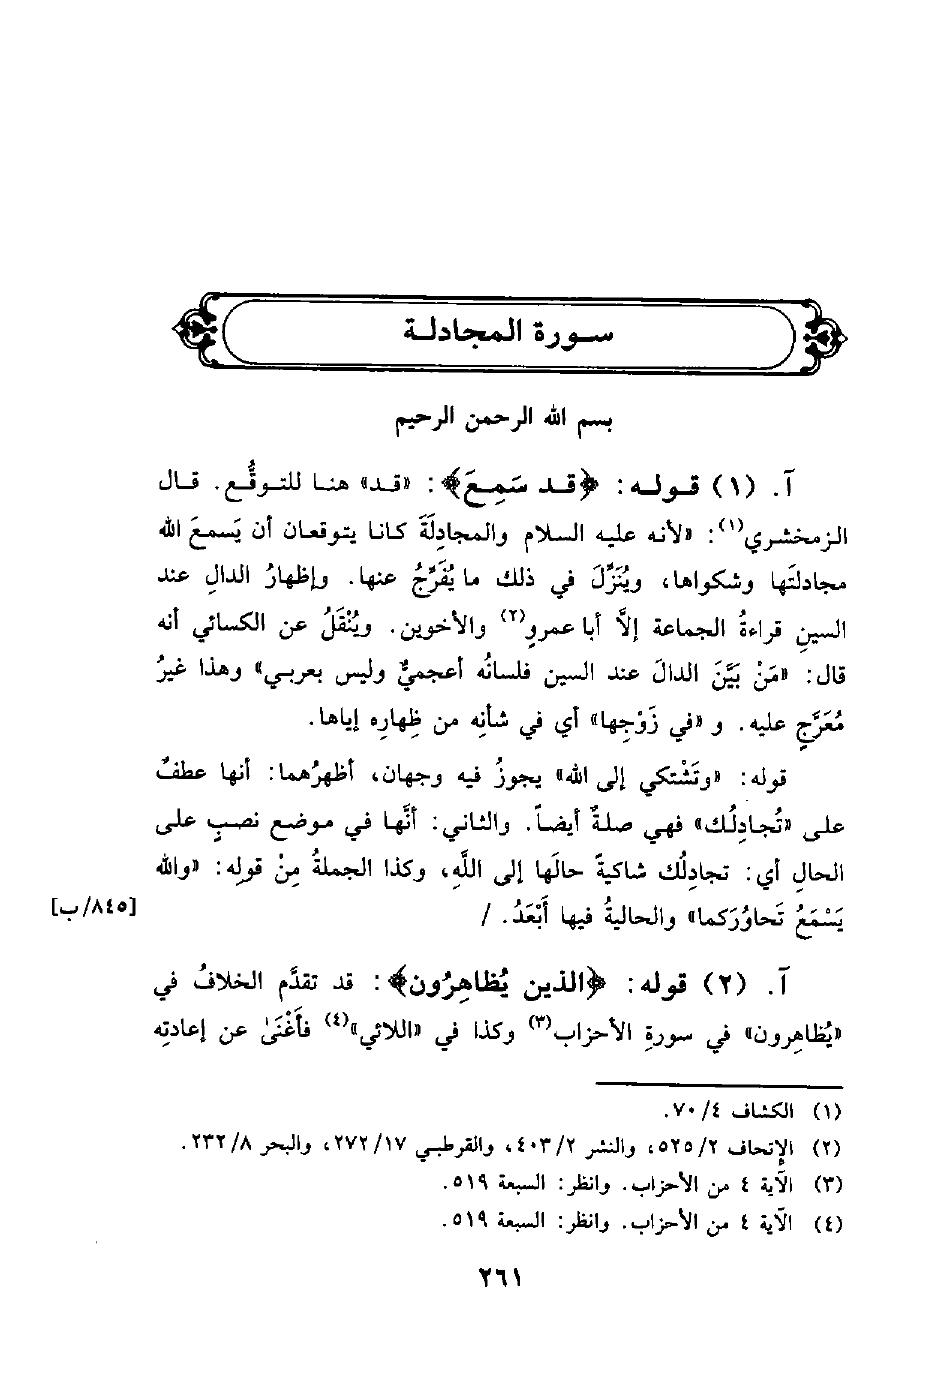 سورة المجادلة
بسم الله الرحمن الرحيم
آ. (١) قوله: ﴿قد سَمِعَ﴾: «قد» هنا للتوقُّع. قال
الزمخشري(١): «لأنه عليه السلام والمجادِلَةَ كانا يتوقعان أن يَسمعَ الله
مجادلتَها وشكواها، ويُنَزِّلَ في ذلك ما يُفَرِّجُ عنها. وإظهارُ الدالِ عند
السينِ قراءةُ الجماعة إلَّا أبا عمروٍ(٢) والأخوين. ويُنْقَلُ عن الكسائي أنه
قال: «مَنْ بَيَّنَ الدالَ عند السين فلسانُه أعجميٌّ وليس بعربي» وهذا غيرُ
مُعَرَّجٍ عليه. و «في زَوْجِها» أي في شأنِه من ظِهارِه إياها.
قوله: «وتَشْتكي إلى الله» يجوزُ فيه وجهان، أظهرُهما: أنها عطفٌ
على «تُجادِلُك» فهي صلةٌ أيضاً. والثاني: أنَّها في موضع نصبٍ على
الحالِ أي: تجادِلُك شاكيةً حالَها إلى اللَّهِ، وكذا الجملةُ مِنْ قولِه: «والله
يَسْمَعُ تَحاوُرَكما» والحاليةُ فيها أَبْعَدُ. /
[٨٤٥/ب]
آ. (٢) قوله: ﴿الذين يُظاهِرُون﴾: قد تقدَّم الخلافُ في
«يُظاهِرون» في سورةِ الأحزاب(٣) وكذا في «اللائي»(٤) فأَغْنَىٰ عن إعادتِه
(١) الكشاف ٤/٧٠.
(٢) الإتحاف ٥٢٥/٢، والنشر ٤٠٣/٢، والقرطبي ٢٧٢/١٧، والبحر ٢٣٢/٨.
(٣) الآية ٤ من الأحزاب. وانظر: السبعة ٥١٩.
(٤) الآية ٤ من الأحزاب. وانظر: السبعة ٥١٩.
٢٦١